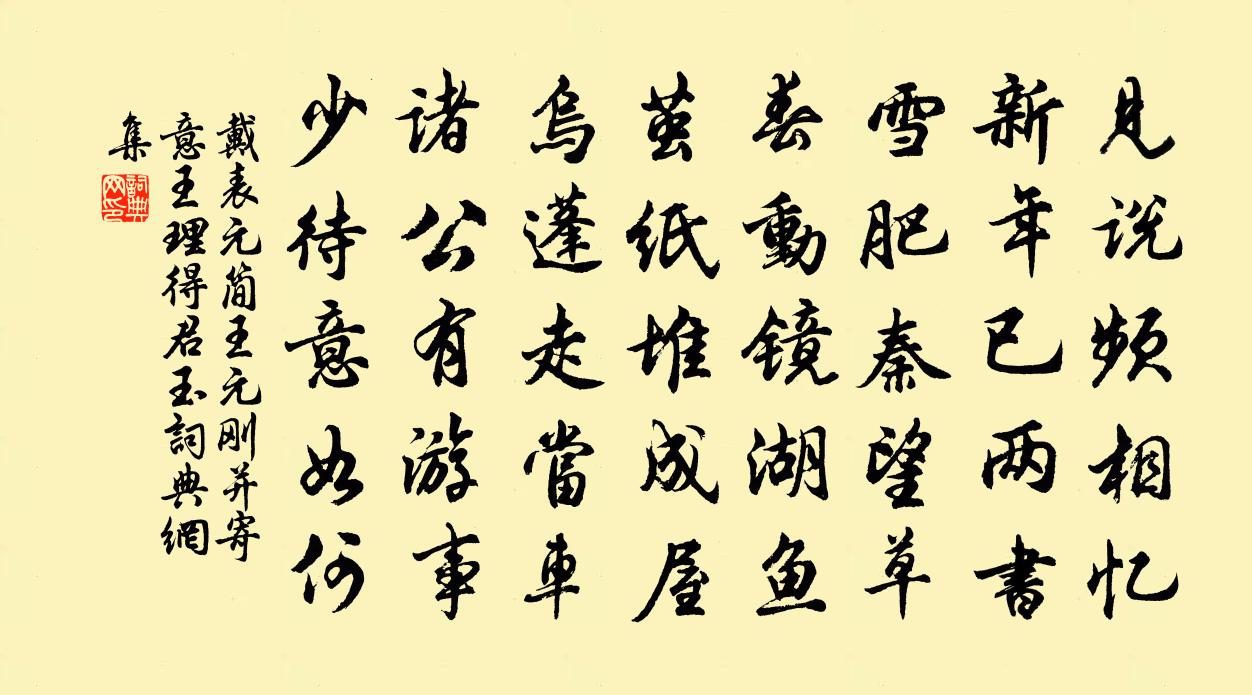 見说频相忆
新年已两書
雪肥秦望草
春動镜湖鱼
茧纸堆成屋
烏蓬走當車
诸公有游事
少待意如何
戴表元简王元刚并寄
意王理得君玉詞典網
集
詞典網印